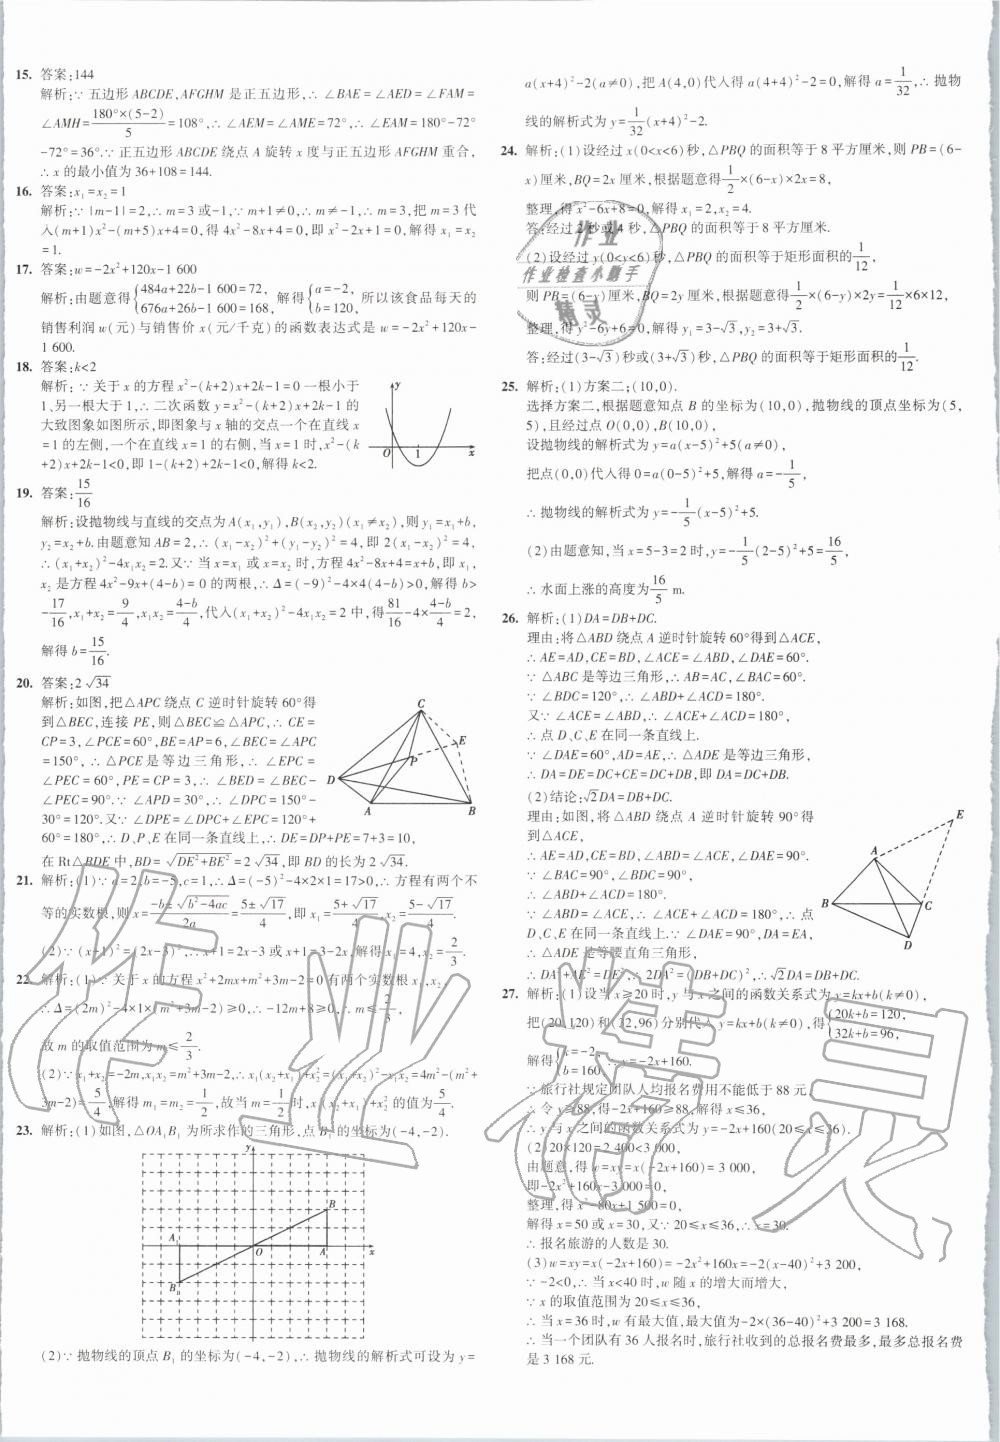 15. 答案:144
解析:∵ 五边形 ABCDE,AFGHM 是正五边形,∴ ∠BAE = ∠AED = ∠FAM =
∠AMH = 180°×(5-2)/5 = 108°,∴ ∠AEM = ∠AME = 72°,∴ ∠EAM = 180°-72°
-72°=36°.∵ 正五边形 ABCDE 绕点 A 旋转 x 度与正五边形 AFGHM 重合,
∴ x 的最小值为 36+108=144.
16. 答案:x₁=x₂=1
解析:∵ |m-1|=2,∴ m=3 或-1,∵ m+1≠0,∴ m≠-1,∴ m=3,把 m=3 代
入(m+1)x²-(m+5)x+4=0,得 4x²-8x+4=0,即 x²-2x+1=0,解得 x₁=x₂
=1.
17. 答案:w=-2x²+120x-1 600
解析:由题意得{484a+22b-1 600=72, 676a+26b-1 600=168, 解得{a=-2, b=120, 所以该食品每天的
销售利润 w(元)与销售价 x(元/千克)的函数表达式是 w=-2x²+120x-
1 600.
18. 答案:k<2
解析:∵ 关于 x 的方程 x²-(k+2)x+2k-1=0 一根小于
1、另一根大于 1,∴ 二次函数 y=x²-(k+2)x+2k-1 的
大致图象如图所示,即图象与 x 轴的交点一个在直线 x
=1 的左侧,一个在直线 x=1 的右侧,当 x=1 时,x²-(k
+2)x+2k-1<0,即 1-(k+2)+2k-1<0,解得 k<2.
y
O 1 x
19. 答案:15/16
解析:设抛物线与直线的交点为 A(x₁,y₁),B(x₂,y₂)(x₁≠x₂),则 y₁=x₁+b,
y₂=x₂+b.由题意知 AB=2,∴ (x₁-x₂)²+(y₁-y₂)²=4,即 2(x₁-x₂)²=4,
∴ (x₁+x₂)²-4x₁x₂=2.又∵ 当 x=x₁ 或 x=x₂ 时,方程 4x²-8x+4=x+b,即 x₁,
x₂ 是方程 4x²-9x+(4-b)=0 的两根,∴ Δ=(-9)²-4×4(4-b)>0,解得 b>
-17/16,x₁+x₂=9/4,x₁x₂=(4-b)/4,代入(x₁+x₂)²-4x₁x₂=2 中,得81/16-4×(4-b)/4=2,
解得 b=15/16.
20. 答案:2√34
解析:如图,把△APC 绕点 C 逆时针旋转 60°得
到△BEC,连接 PE,则△BEC≌△APC,∴ CE=
CP=3,∠PCE=60°,BE=AP=6,∠BEC=∠APC
=150°,∴ △PCE 是等边三角形,∴ ∠EPC=
∠PEC=60°,PE=CP=3,∴ ∠BED=∠BEC-
∠PEC=90°.∵ ∠APD=30°,∴ ∠DPC=150°-
30°=120°.又∵ ∠DPE=∠DPC+∠EPC=120°+
60°=180°,∴ D、P、E 在同一条直线上,∴ DE=DP+PE=7+3=10,
在 Rt△BDE 中,BD=√(DE²+BE²)=2√34,即 BD 的长为 2√34.
C
E
P
D
A B
21. 解析:(1)∵ a=2,b=-5,c=1,∴ Δ=(-5)²-4×2×1=17>0,∴ 方程有两个不
等的实数根,则 x=(-b±√(b²-4ac))/2a=(5±√17)/4,即 x₁=(5+√17)/4,x₂=(5-√17)/4.
(2)∵ (x+1)²=(2x-3)²,∴ x+1=2x-3 或 x+1=3-2x,解得 x₁=4,x₂=2/3.
22. 解析:(1)∵ 关于 x 的方程 x²+2mx+m²+3m-2=0 有两个实数根 x₁,x₂,
∴ Δ=(2m)²-4×1×(m²+3m-2)≥0,∴ -12m+8≥0,∴ m≤2/3,
故 m 的取值范围为 m≤2/3.
(2)∵ x₁+x₂=-2m,x₁x₂=m²+3m-2,∴ x₁(x₂+x₁)+x₂²=(x₁+x₂)²-x₁x₂=4m²-(m²+
3m-2)=5/4,解得 m₁=m₂=1/2,故当 m=1/2时,x₁(x₂+x₁)+x₂² 的值为5/4.
23. 解析:(1)如图,△OA₁B₁ 为所求作的三角形,点 B₁ 的坐标为(-4,-2).
y
B
A₁ O A x
B₁
(2)∵ 抛物线的顶点 B₁ 的坐标为(-4,-2),∴ 抛物线的解析式可设为 y=
a(x+4)²-2(a≠0),把 A(4,0)代入得 a(4+4)²-2=0,解得 a=1/32,∴ 抛物
线的解析式为 y=1/32(x+4)²-2.
24. 解析:(1)设经过 x(0<x<6)秒,△PBQ 的面积等于 8 平方厘米,则 PB=(6-
x)厘米,BQ=2x 厘米,根据题意得1/2×(6-x)×2x=8,
整理,得 x²-6x+8=0,解得 x₁=2,x₂=4.
答:经过 2 秒或 4 秒,△PBQ 的面积等于 8 平方厘米.
(2)设经过 y(0<y<6)秒,△PBQ 的面积等于矩形面积的1/12,
则 PB=(6-y)厘米,BQ=2y 厘米,根据题意得1/2×(6-y)×2y=1/12×6×12,
整理,得 y²-6y+6=0,解得 y₁=3-√3,y₂=3+√3.
答:经过(3-√3)秒或(3+√3)秒,△PBQ 的面积等于矩形面积的1/12.
25. 解析:(1)方案二;(10,0).
选择方案二,根据题意知点 B 的坐标为(10,0),抛物线的顶点坐标为(5,
5),且经过点 O(0,0),B(10,0),
设抛物线的解析式为 y=a(x-5)²+5(a≠0),
把点(0,0)代入得 0=a(0-5)²+5,解得 a=-1/5,
∴ 抛物线的解析式为 y=-1/5(x-5)²+5.
(2)由题意知,当 x=5-3=2 时,y=-1/5(2-5)²+5=16/5,
∴ 水面上涨的高度为16/5 m.
26. 解析:(1)DA=DB+DC.
理由:将△ABD 绕点 A 逆时针旋转 60°得到△ACE,
∴ AE=AD,CE=BD,∠ACE=∠ABD,∠DAE=60°.
∵ △ABC 是等边三角形,∴ AB=AC,∠BAC=60°.
∵ ∠BDC=120°,∴ ∠ABD+∠ACD=180°.
又∵ ∠ACE=∠ABD,∴ ∠ACE+∠ACD=180°,
∴ 点 D、C、E 在同一条直线上.
∵ ∠DAE=60°,AD=AE,∴ △ADE 是等边三角形,
∴ DA=DE=DC+CE=DC+DB,即 DA=DC+DB.
(2)结论:√2DA=DB+DC.
理由:如图,将△ABD 绕点 A 逆时针旋转 90°得
到△ACE,
∴ AE=AD,CE=BD,∠ABD=∠ACE,∠DAE=90°.
∵ ∠BAC=90°,∠BDC=90°.
∴ ∠ABD+∠ACD=180°.
∵ ∠ABD=∠ACE,∴ ∠ACE+∠ACD=180°,∴ 点
D、C、E 在同一条直线上.∵ ∠DAE=90°,DA=EA,
∴ △ADE 是等腰直角三角形,
∴ DA²+AE²=DE²,∴ 2DA²=(DB+DC)²,∴ √2DA=DB+DC.
E
A
B C
D
27. 解析:(1)设当 x≥20 时,y 与 x 之间的函数关系式为 y=kx+b(k≠0),
把(20,120)和(32,96)分别代入 y=kx+b(k≠0),得{20k+b=120, 32k+b=96,
解得{k=-2, b=160 ∴ y=-2x+160.
∵ 旅行社规定团队人均报名费用不能低于 88 元,
∴ 令 y≥88,得-2x+160≥88,解得 x≤36,
∴ y 与 x 之间的函数关系式为 y=-2x+160(20≤x≤36).
(2)20×120=2 400<3 000,
由题意,得 w=xy=x(-2x+160)=3 000,
即-2x²+160x-3 000=0,
整理,得 x²-80x+1 500=0,
解得 x=50 或 x=30,又∵ 20≤x≤36,∴ x=30.
∴ 报名旅游的人数是 30.
(3)w=xy=x(-2x+160)=-2x²+160x=-2(x-40)²+3 200,
∵ -2<0,∴ 当 x<40 时,w 随 x 的增大而增大,
∵ x 的取值范围为 20≤x≤36,
∴ 当 x=36 时,w 有最大值,最大值为-2×(36-40)²+3 200=3 168.
∴ 当一个团队有 36 人报名时,旅行社收到的总报名费最多,最多总报名费
是 3 168 元.
作业
作业检查小助手
精灵
作业精灵